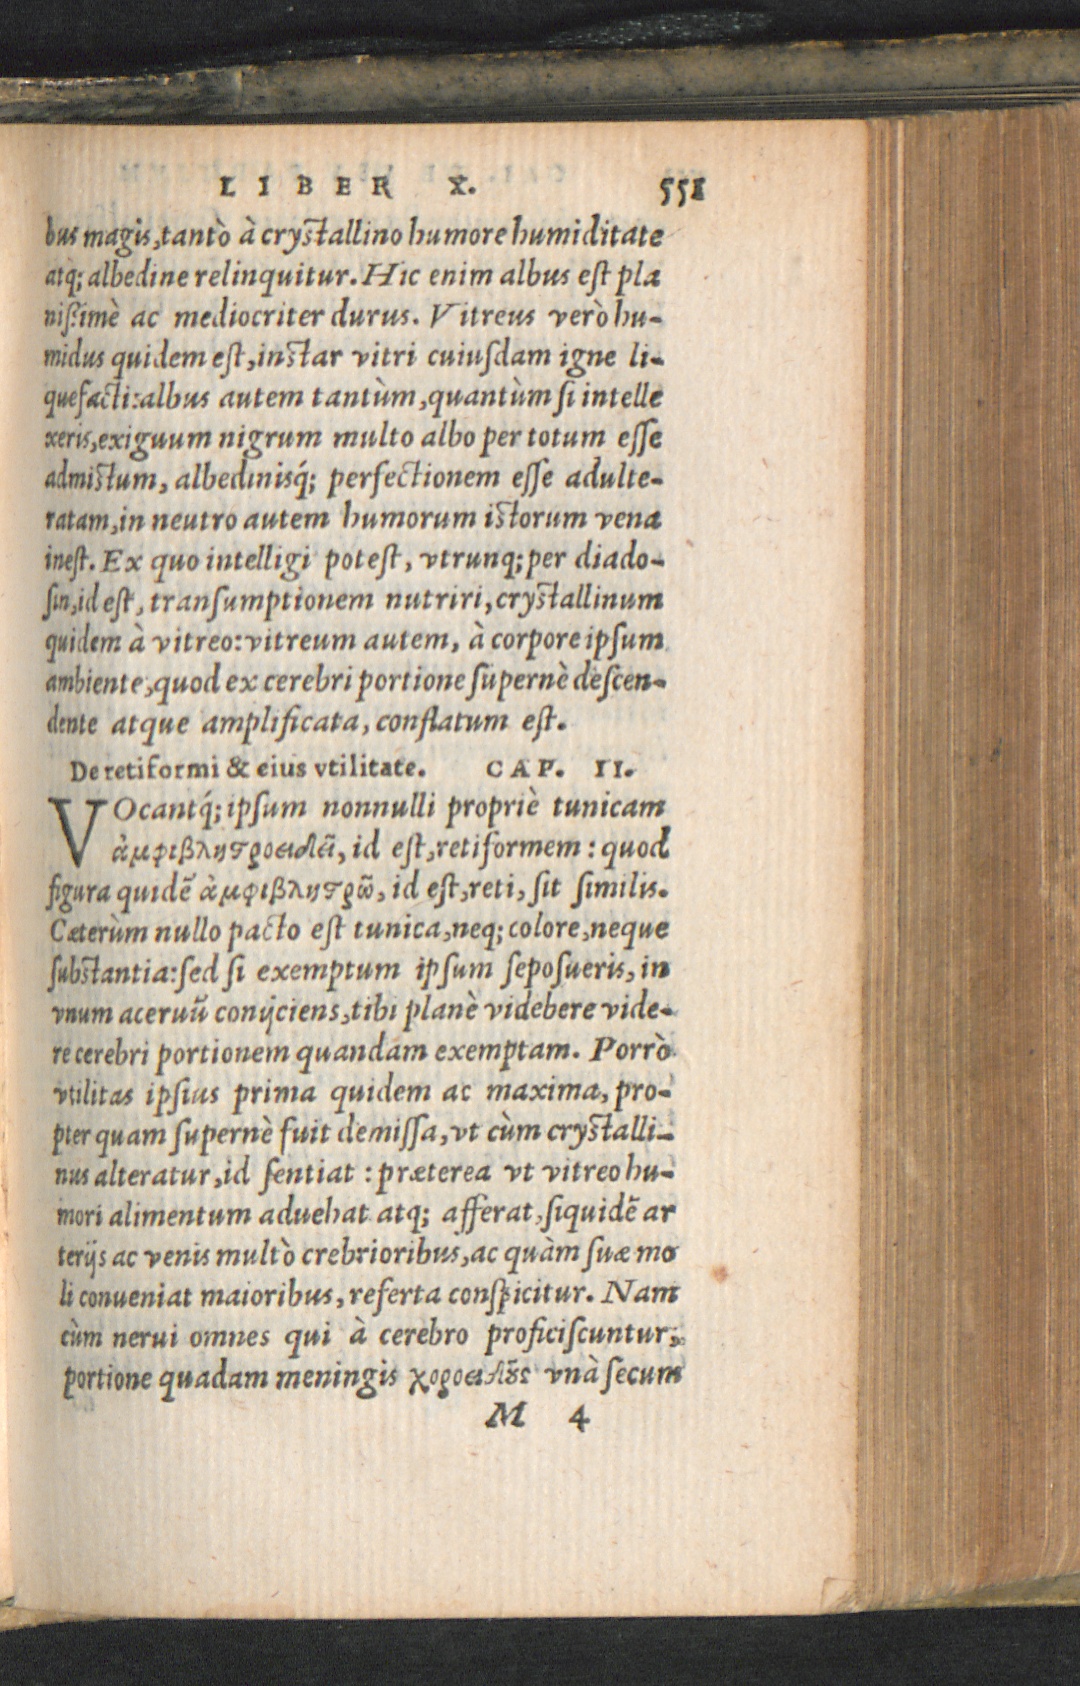 LIBER X. 551
bus magis, tantò à crystallino humore humiditate
atq́; albedine relinquitur. Hic enim albus est pla
nißimè ac mediocriter durus. Vitreus verò hu-
midus quidem est, instar vitri cuiusdam igne li-
quefacti: albus autem tantùm, quantùm si intelle
xeris, exiguum nigrum multo albo per totum esse
admistum, albedinisq́; perfectionem esse adulte-
ratam, in neutro autem humorum istorum vena
inest. Ex quo intelligi potest, vtrunq; per diado-
sin, id est, transumptionem nutriri, crystallinum
quidem à vitreo: vitreum autem, à corpore ipsum
ambiente, quod ex cerebri portione supernè descen-
dente atque amplificata, conflatum est.
De retiformi & eius vtilitate. CAP. II.
VOcantq́; ipsum nonnulli propriè tunicam
ἀμφιβληστροειδῆ, id est, retiformem: quod
figura quidẽ ἀμφιβληστρῶ, id est, reti, sit similis.
Cæterùm nullo pacto est tunica, neq; colore, neque
substantia: sed si exemptum ipsum seposueris, in
vnum aceruũ conijciens, tibi planè videbere vide-
re cerebri portionem quandam exemptam. Porrò
vtilitas ipsius prima quidem ac maxima, pro-
pter quam supernè fuit demissa, vt cùm crystalli-
nus alteratur, id sentiat: præterea vt vitreo hu-
mori alimentum aduehat atq; afferat, siquidẽ ar
terijs ac venis multò crebrioribus, ac quàm suæ mo
li conueniat maioribus, referta conspicitur. Nam
cùm nerui omnes qui à cerebro proficiscuntur,
portione quadam meningis χοροειδοῦς vnà secum
M 4